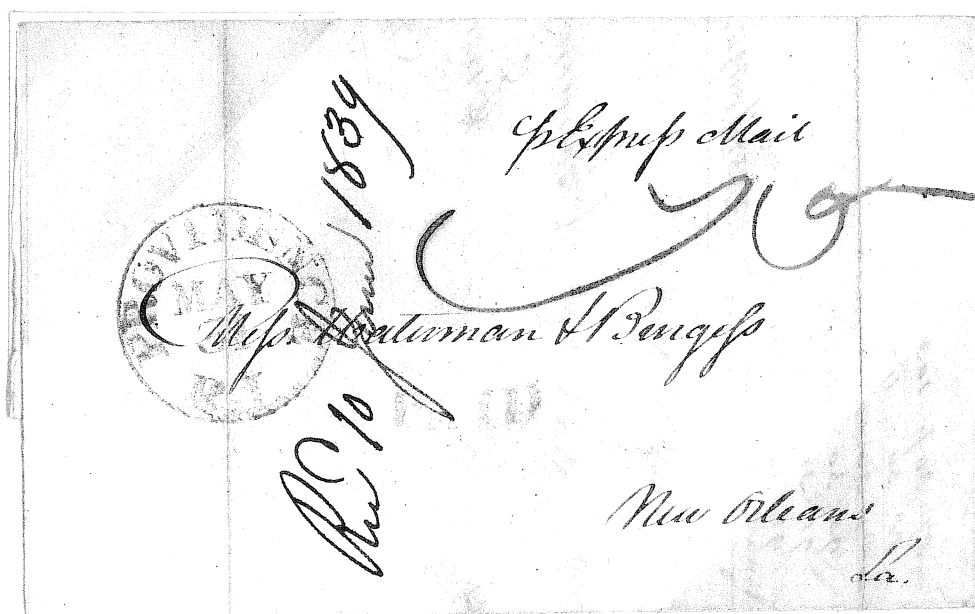 p Express Mail
PROVIDENCE
MAY
R.I.
Mess. Waterman & Burgess
New Orleans
La.
Rec 10 June 1839